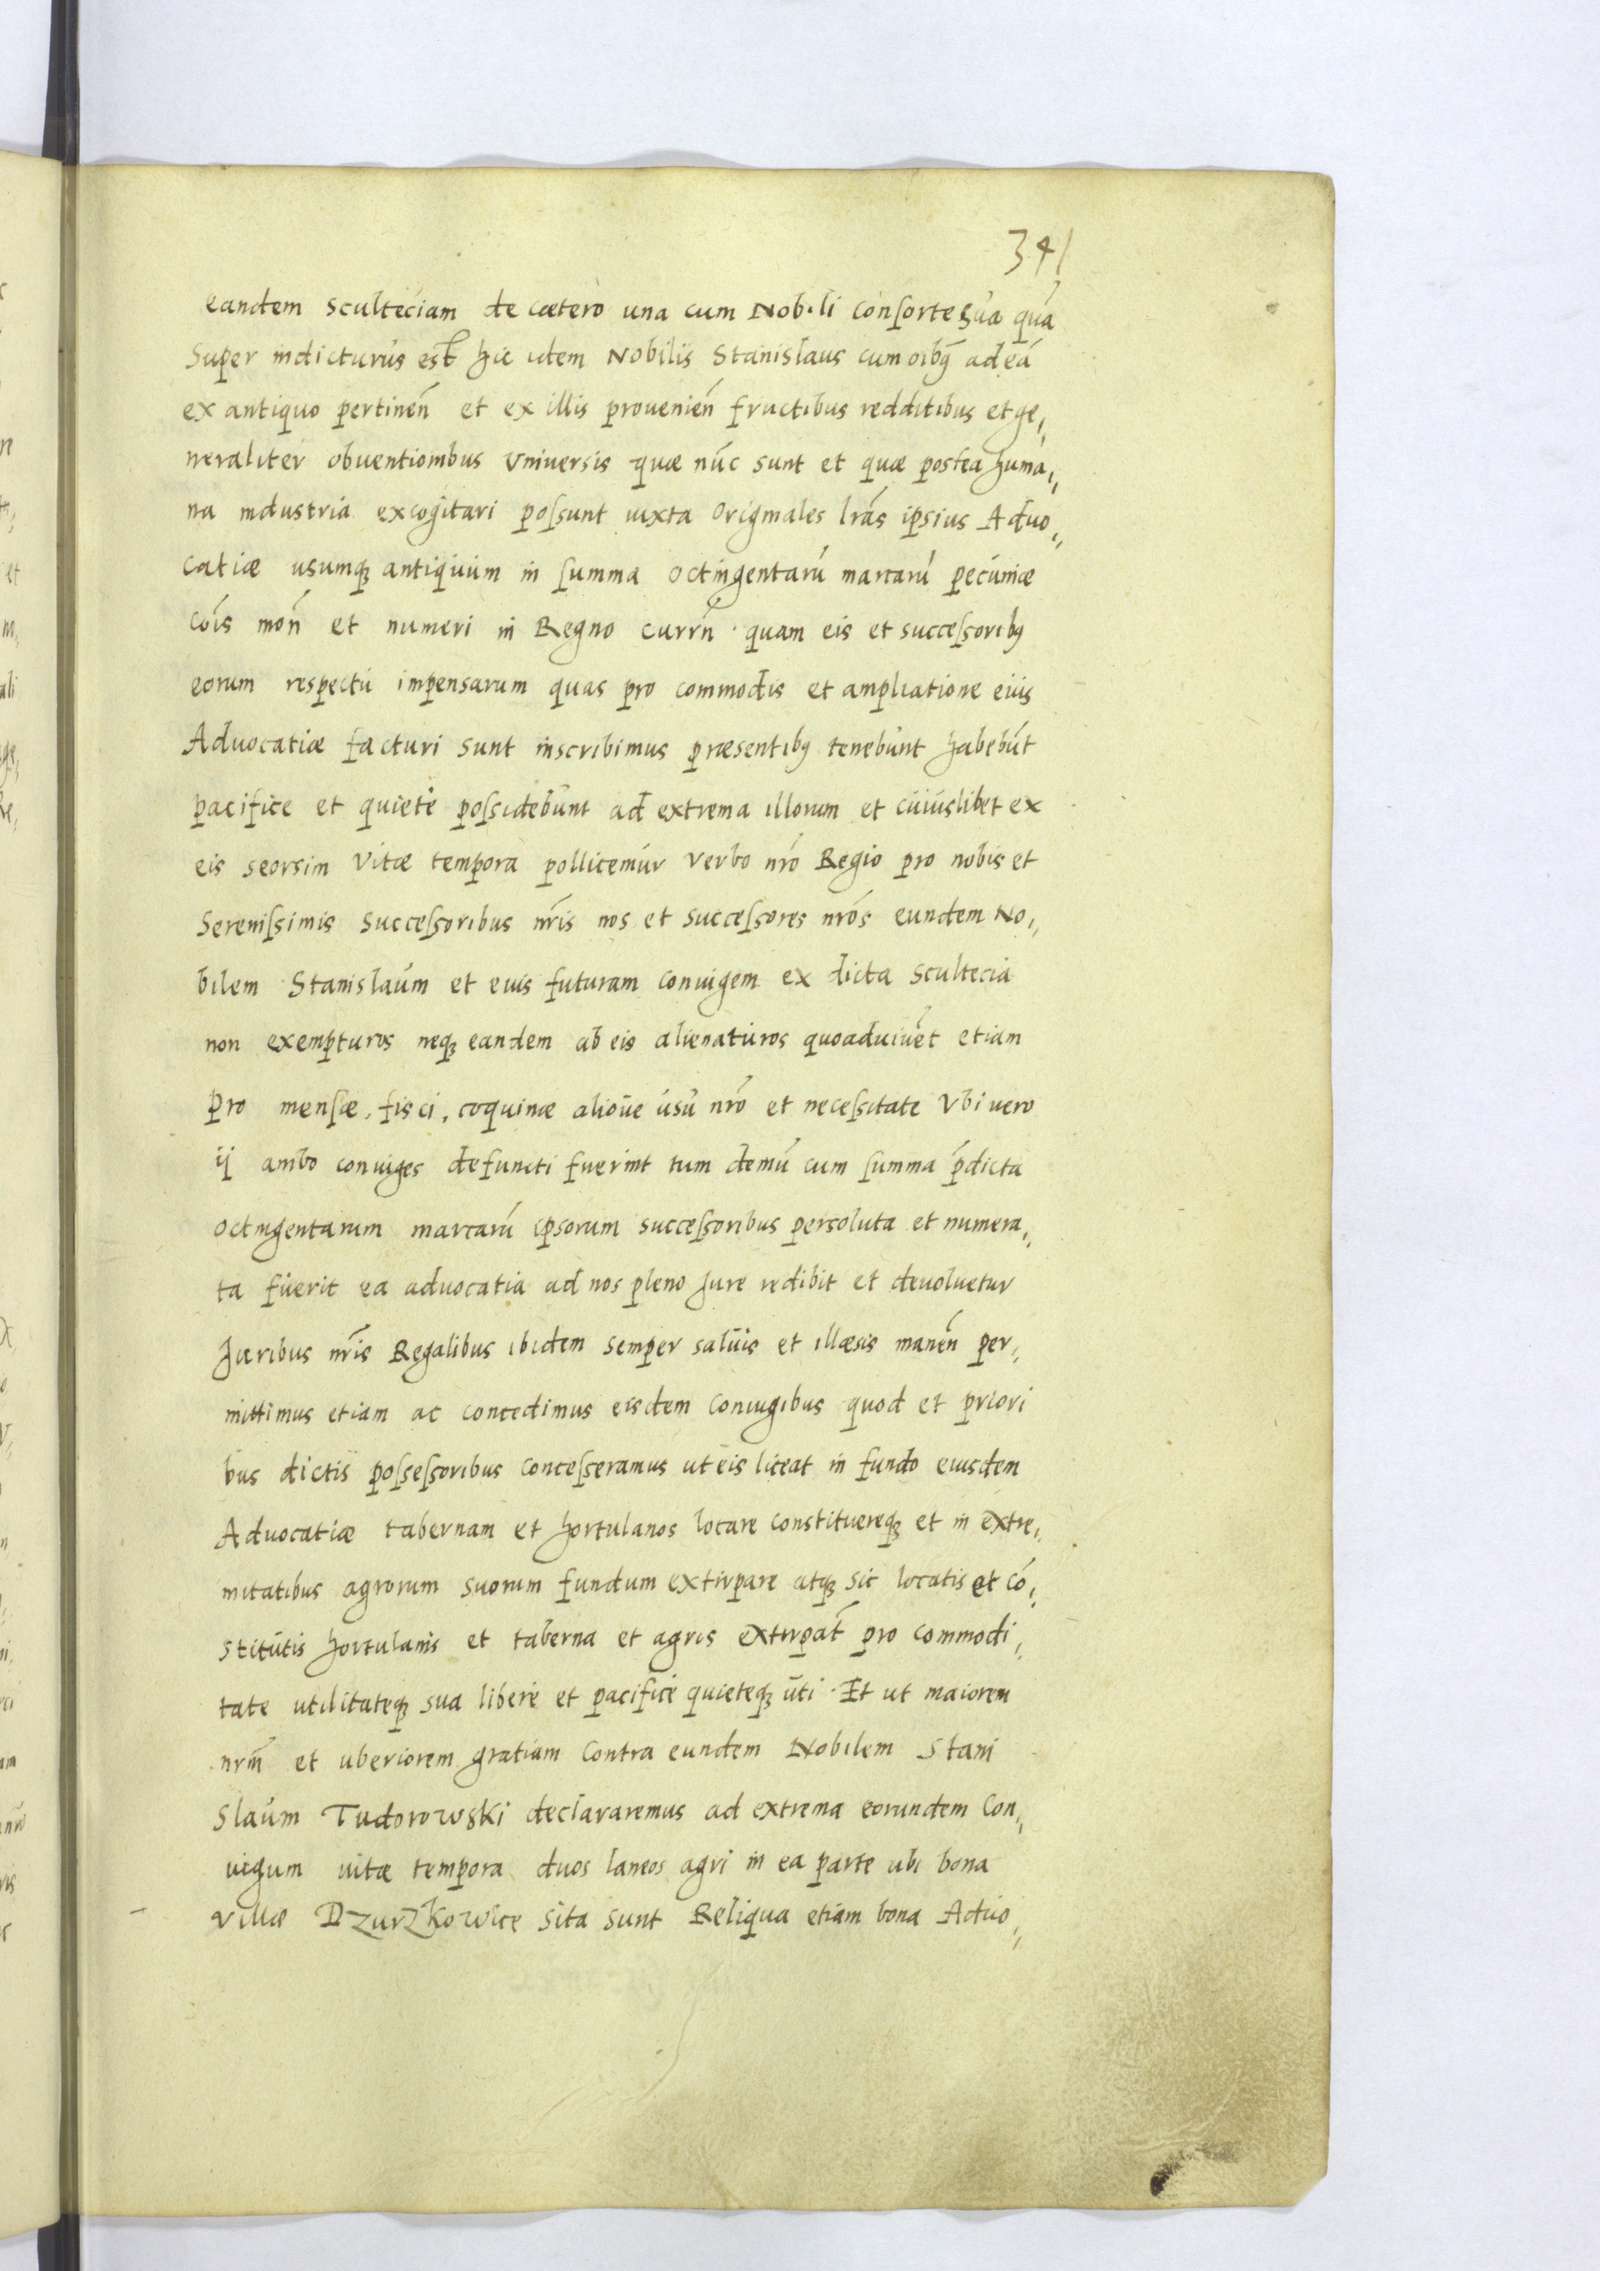 341
eandem sculteciam de cætero una cum Nobili consorte sua quã
super indicturus est hic idem Nobilis Stanislaus cum oĩbꝫ ad eã
ex antiquo pertineñ et ex illis provenieñ fructibus redditibus et ge,,
neraliter obventionibus Vniversis quæ nũc sunt et quæ postea huma,,
na industria excogitari possunt iuxta originales lr̃as ipsius Advo,,
catiæ usumqꝫ antiquum in summa octingentarũ marcarũ pecuniæ
cõis moñ et numeri in Regno curr̃n. quam eis et successoribꝫ
eorum respectu impensarum quas pro commodis et ampliatione eius
Advocatiæ facturi sunt inscribimus præsentibꝫ tenebunt habebũt
pacifice et quiete possidebunt ad extrema illorum et cuiuslibet ex
eis seorsim Vitæ tempora pollicemur verbo nr̃o Regio pro nobis et
Serenissimis successoribus nr̃is nos et successores nr̃os eundem No,,
bilem Stanislaum et eius futuram coniugem ex dicta scultecia
non exempturos neqꝫ eandem ab eis alienaturos quoaduiuẽt etiam
pro mensæ, fisci, coquinæ aliove usu nr̃o et necessitate Vbi uero
ij ambo coniuges defuncti fuerint tum demũ cum summa p̃dicta
octingentarum marcarũ ipsorum successoribus persoluta et numera,,
ta fuerit ea advocatia ad nos pleno Jure redibit et devoluetur
Juribus nr̃is Regalibus ibidem semper salvis et illæsis maneñ per,,
mittimus etiam ac concedimus eisdem coniugibus quod et priori
bus dictis possessoribus concesseramus ut eis liceat in fundo eiusdem
Advocatiæ tabernam et hortulanos locare constituereqꝫ et in extre,,
mitatibus agrorum suorum fundum extirpare atqꝫ sic locatis et cõ,,
stitutis hortulanis et taberna et agris extirpat̃ pro commodi,,
tate utilitateqꝫ sua libere et pacifice quieteqꝫ uti. Et ut maiorem
nr̃m et uberiorem gratiam contra eundem Nobilem Stani
slaum Tudorowski declararemus ad extrema eorundem Con,,
iugum uitæ tempora duos laneos agri in ea parte ubi bona
villæ Dzurzkowice sita sunt Reliqua etiam bona Advo,,